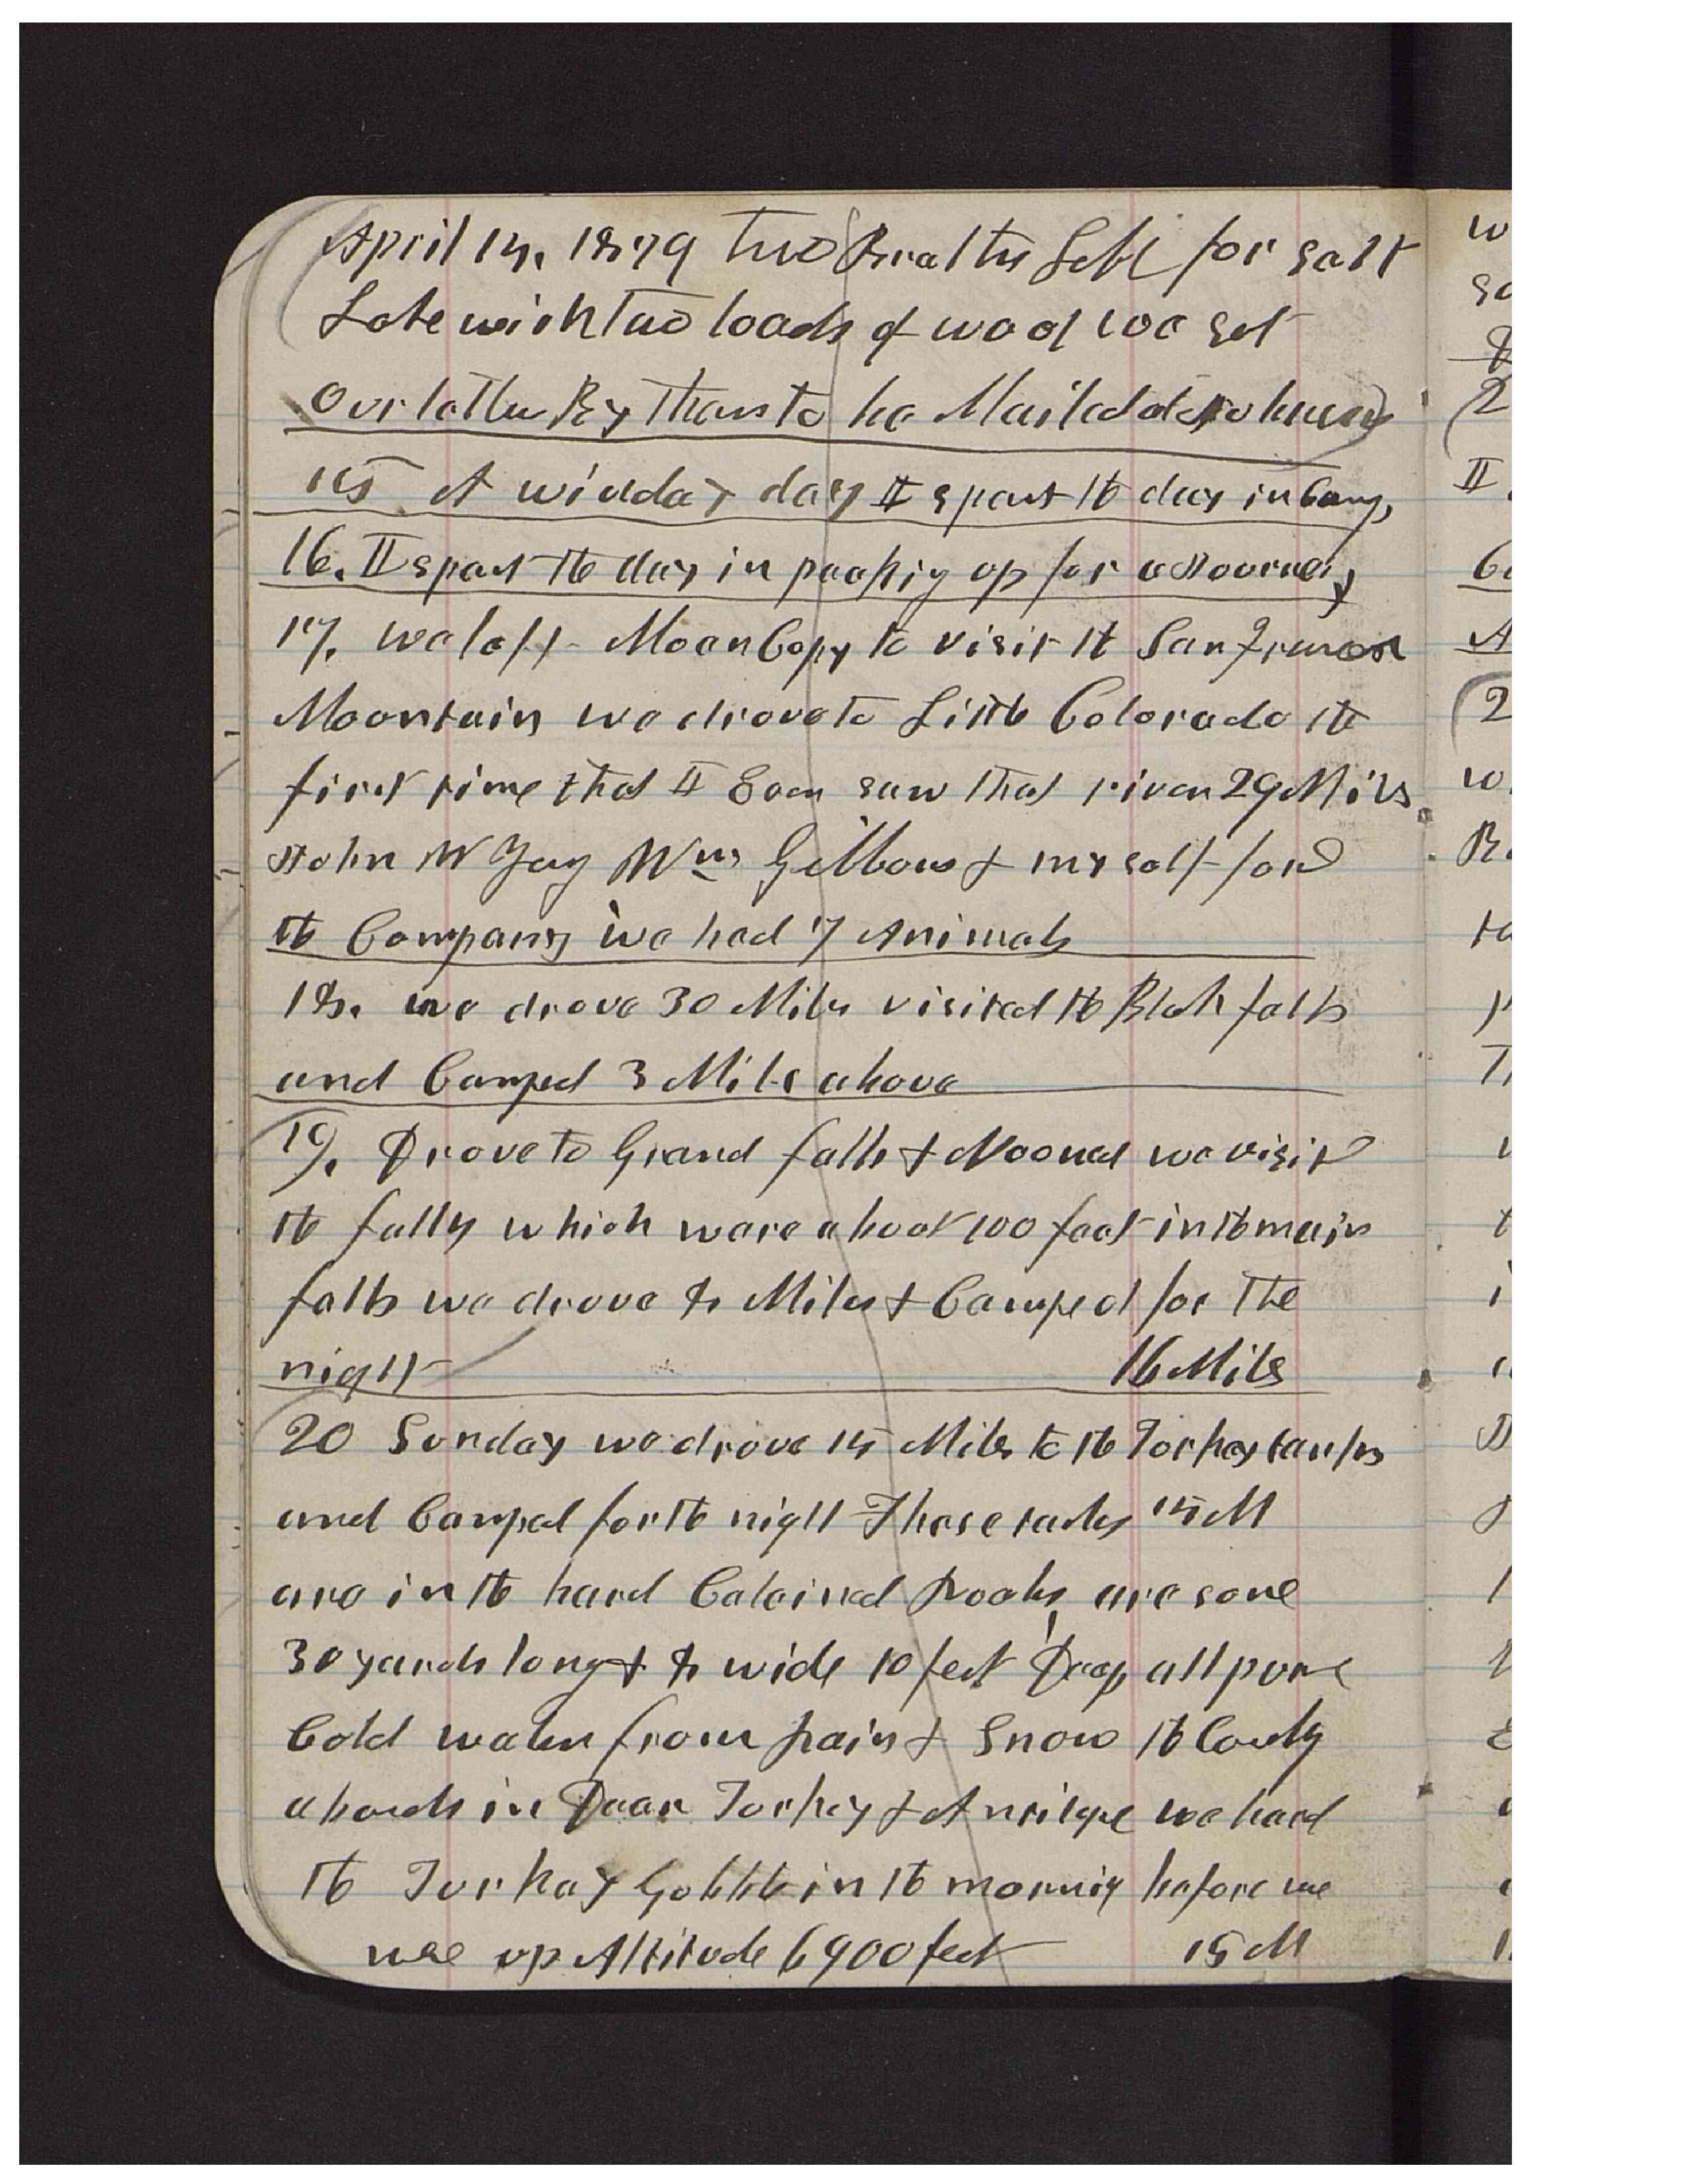 April 14, 1879 Two Breathr Left for Salt
Lake with Two loads of wool we set
our letter By Them to be Mailed at Johnson
15 A winday day I spent the day in Camp,
16. I spent the day in packig up for a Journey
17. we left Moan Copy to visit the San Francisco
Mountain we drove to Little Colorado the
first time that I Ever saw that river 29 Mils
John W Young Wm Gibbons & myself for
the Company we had 7 Animals
18. we drove 30 Miles visited the Black falls
and Camped 3 Miles above
19. Drove to Grand falls & Nooned we visit
the falls which ware about 100 feet in the main
falls we drove 8 Miles & Camped for the
night 16 Miles
20 Sunday we drove 15 Miles to the Turkey tanks
and Camped for the night These tanks 15 M
are in the hard Calcined Rocks are some
30 yards long & 8 wide 10 feet Deep all pure
Cold water from Rain & Snow the County
abounds in Dear Turkey & Antilope we heard
the Turkey Gobble in the mornig before we
use up Altitude 6900 feet 15 M
w
sa
2
II
Ca
A
(2
w
Ba
ta
p
Th